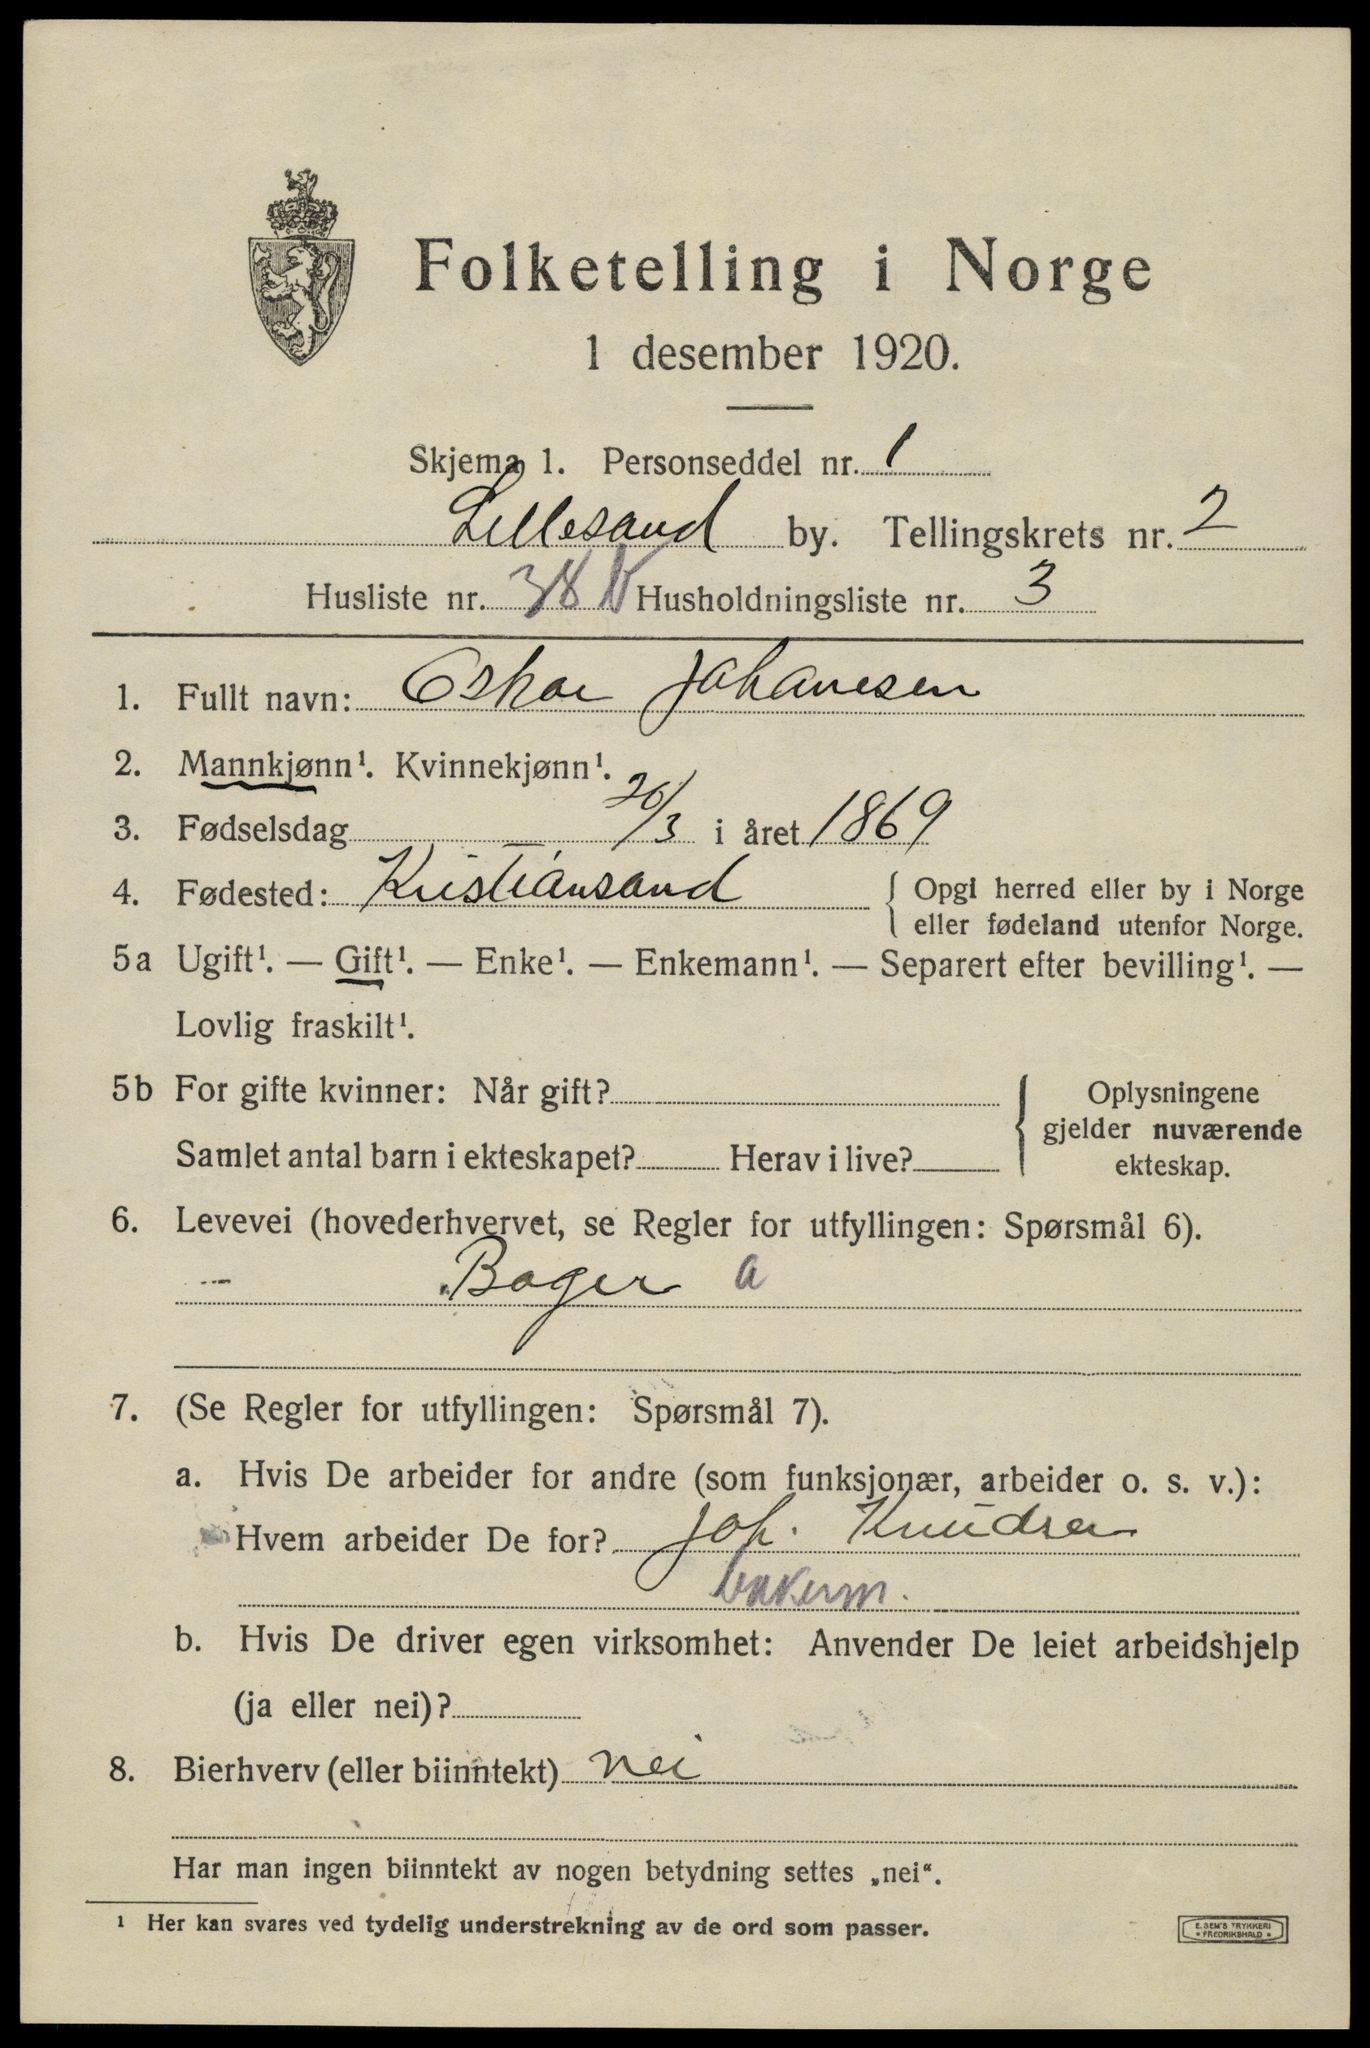 Folketelling i Norge
1 desember 1920.
Skjema 1. Personseddel nr. 1
Lillesand by. Tellingskrets nr. 2
Husliste nr. 38 Husholdningsliste nr. 3
1. Fullt navn: Oskar Johanesen
2. Mannkjønn¹. Kvinnekjønn¹.
3. Fødselsdag 20/3 i året 1869
4. Fødested: Kristiansand { Opgi herred eller by i Norge
eller fødeland utenfor Norge.
5a Ugift¹. — Gift¹. — Enke¹. — Enkemann¹. — Separert efter bevilling¹. —
Lovlig fraskilt¹.
5b For gifte kvinner: Når gift?
Samlet antal barn i ekteskapet? Herav i live?
Oplysningene
gjelder nuværende
ekteskap.
6. Levevei (hovederhvervet, se Regler for utfyllingen: Spørsmål 6).
Bager a
7. (Se Regler for utfyllingen: Spørsmål 7).
a. Hvis De arbeider for andre (som funksjonær, arbeider o. s. v.):
Hvem arbeider De for? Joh. Knudsen
bakerm.
b. Hvis De driver egen virksomhet: Anvender De leiet arbeidshjelp
(ja eller nei)?
8. Bierhverv (eller biinntekt) nei
Har man ingen biinntekt av nogen betydning settes „nei“.
¹ Her kan svares ved tydelig understrekning av de ord som passer.
E. SEM'S TRYKKERI
FREDRIKSHALD